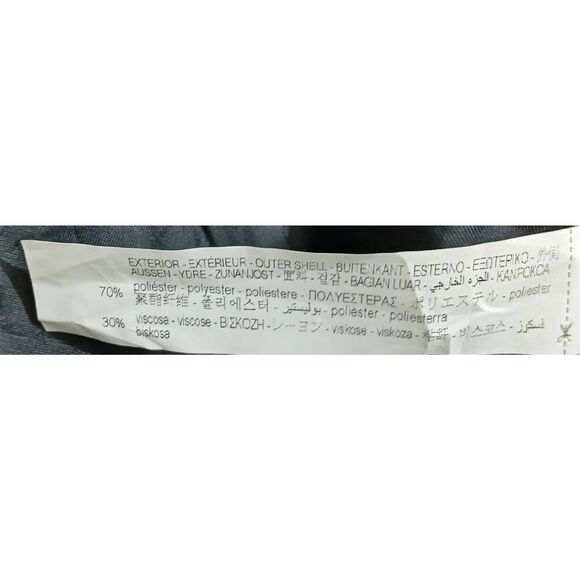 EXTERIOR - EXTÉRIEUR - OUTER SHELL - BUITENKANT - ESTERNO - ΕΞΩΤΕΡΙΚΟ - 外側
AUSSEN - YDRE - ZUNANJOST - 面料 - 겉감 - BAGIAN LUAR - الجزء الخارجي - KANPOKOA
70% poliéster - polyester - poliestere - ΠΟΛΥΕΣΤΕΡΑΣ - ポリエステル - poliester
聚酯纤维 - 폴리에스터 - بوليستر - polièster - poliesterra
30% viscosa - viscose - ΒΙΣΚΟΖΗ - レーヨン - viskose - viskoza - 粘纤 - 비스코스 - فسكوز
biskosa